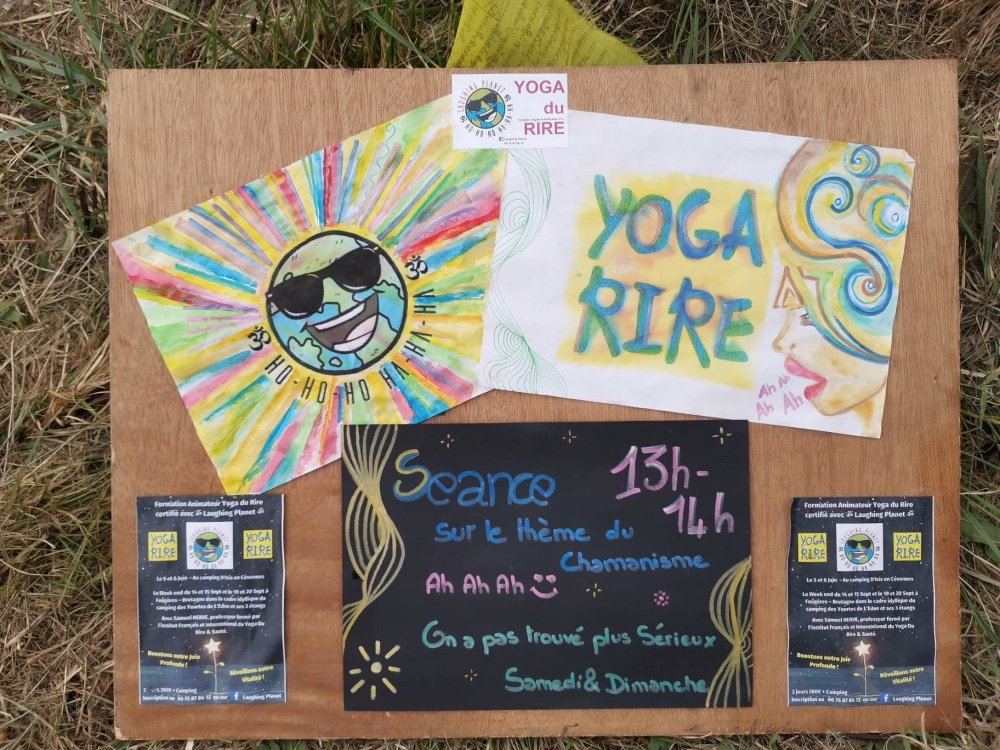 LAUGHING PLANET
HO-HO-HO HA-HA-HA
YOGA
du
RIRE
Laughing Planet
ॐ
ॐ
HO-HO-HO HA-HA-HA
YOGA
RIRE
Ah Ah
Ah Ah
Seance
13h-
14h
sur le thème du
Chamanisme
Ah Ah Ah
On a pas trouvé plus Sérieux
Samedi & Dimanche
Formation Animateur Yoga du Rire
certifié avec ॐ Laughing Planet ॐ
YOGA
RIRE
YOGA
RIRE
Le 5 et 6 Juin - Au camping D'Isis en Cévennes
Le Week end du 14 et 15 Sept et le 19 et 20 Sept à
Foûgères - Bretagne dans le cadre idyllique du
camping des Yourtes de L'Eden et ses 3 étangs
Avec Samuel HERVE, professeur formé par
l'institut Français et International du Yoga Du
Rire & Santé.
Boostons notre Joie
Profonde !
Réveillons notre
Vitalité !
2 jours 260€ + Camping
Inscription au 06 75 87 04 12 ou sur Laughing Planet
Formation Animateur Yoga du Rire
certifié avec ॐ Laughing Planet ॐ
YOGA
RIRE
YOGA
RIRE
Le 5 et 6 Juin - Au camping D'Isis en Cévennes
Le Week end du 14 et 15 Sept et le 19 et 20 Sept à
Foûgères - Bretagne dans le cadre idyllique du
camping des Yourtes de L'Eden et ses 3 étangs
Avec Samuel HERVE, professeur formé par
l'institut Français et International du Yoga Du
Rire & Santé.
Boostons notre Joie
Profonde !
Réveillons notre
Vitalité !
2 jours 260€ + Camping
Inscription au 06 75 87 04 12 ou sur Laughing Planet